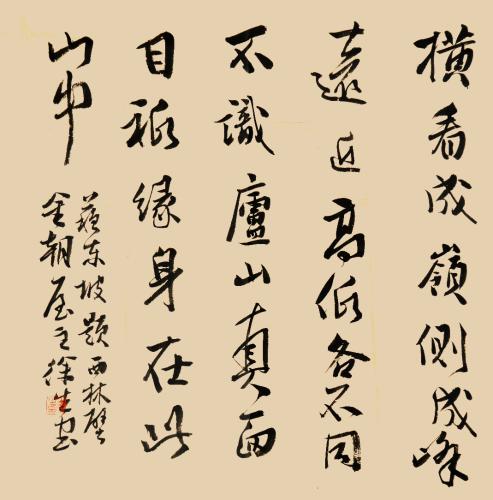 横看成嶺側成峰
遠近高低各不同
不識廬山真面
目祗緣身在此
山中
蘇東坡題西林壁
金朝屋主徐生书